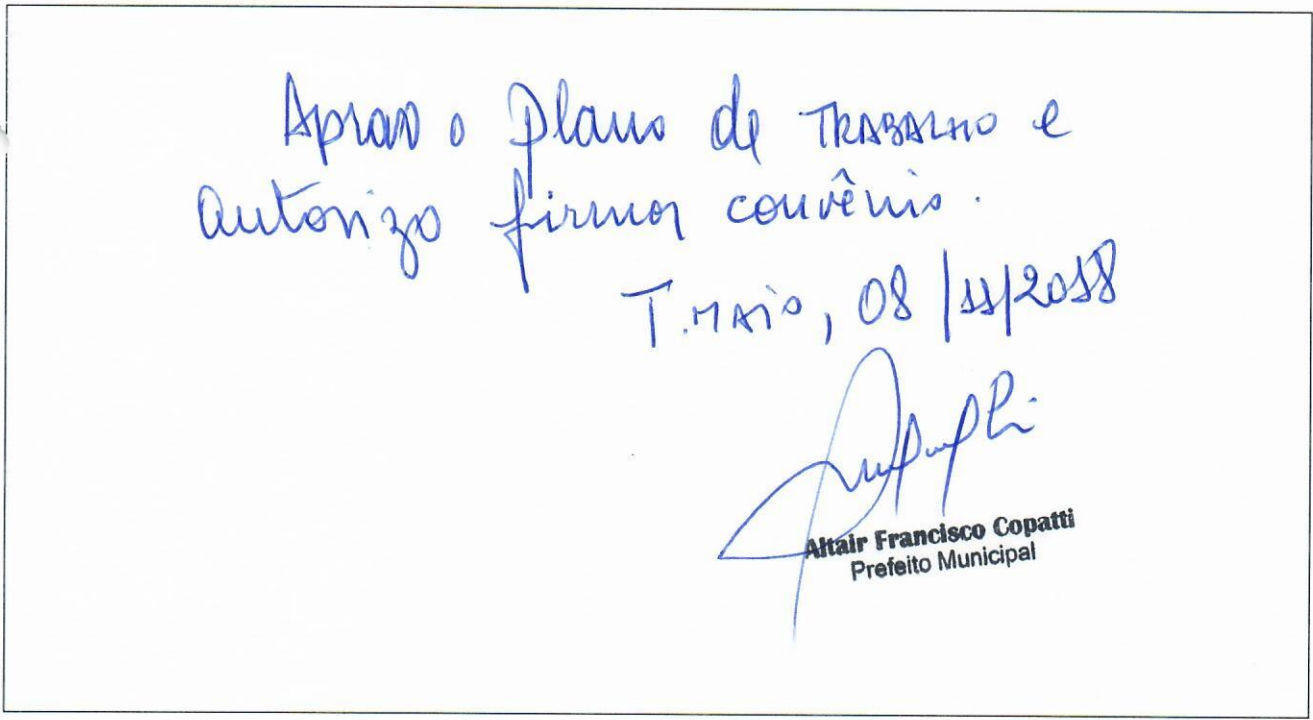 Aprovo o Plano de TRABALHO e
autorizo firmar convênio.
T. MAIO, 08/11/2018
Altair Francisco Copatti
Prefeito Municipal